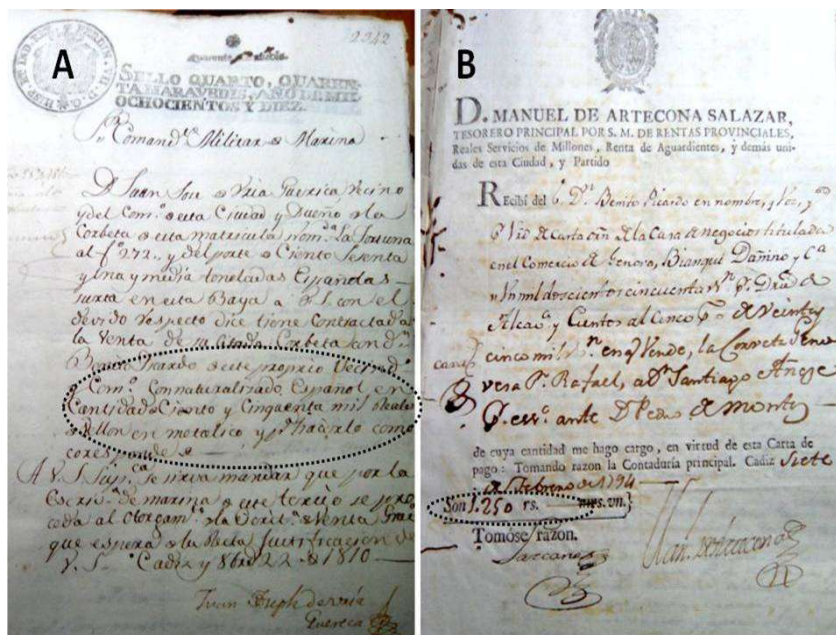 A
2342
HISP. ET IND. REX FERDIN. VII. D. G.
SELLO QUARTO, QUAREN-
TA MARAVEDIS, AÑO DE MIL
OCHOCIENTOS Y DIEZ.
Comandte Militar de Marina
Dn Juan Jose de Vria Guereca Vecino
y del Como de esta Ciudad y Dueño de la
Corbeta de esta matricula nomda la Fortuna
al fo 272., y del porte de Ciento Sesenta
y una y media toneladas Españolas
surta en esta Baya a V.S. con el
devido respecto dice tiene Contractada
la Venta de la citada Corbeta con Dn
Benito Picardo de este proprio Vecindo
y Como Connaturalizado Español en
Cantidad de Ciento y Cinquenta mil Reales
de Vellon en metalico y pa hacerlo como
coresponde
A V.S. Suppca se sirva mandar que por la
Escribna de marina de este tercio se pro
ceda al otorgamto de la Scritra de Venta
que espera de la Recta Justificacion de
V.S. Cadiz y 8bre 22 de 1810
Juan Joseph de Vria
Guereca
B
D. MANUEL DE ARTECONA SALAZAR,
TESORERO PRINCIPAL POR S. M. DE RENTAS PROVINCIALES,
Reales Servicios de Millones, Renta de Aguardientes, y demás uni-
das de esta Ciudad, y Partido
Recibí del Sr. Dn Benito Picardo en nombre, y Voz, y
Vio de Carta orn de la Casa de negocios titulada
en el Comercio de Genova, Bianqui Damino y Ca
Un mil doscientos cincuenta rs vn pr Dros de
Alcava y Cientos al Cinco pr % de Veinte y
cinco mil rs vn en q Vende, la Corveta Geno
vesa Sn Rafael, a Dn Santiago
pr essra ante Dn Pedro de Montes
de cuya cantidad me hago cargo, en virtud de esta Carta de
pago: Tomando razon la Contaduría principal. Cadiz Siete
de Febrero de 1794
Son 1.250 rs. mrs. vn.
Tomóse razon.